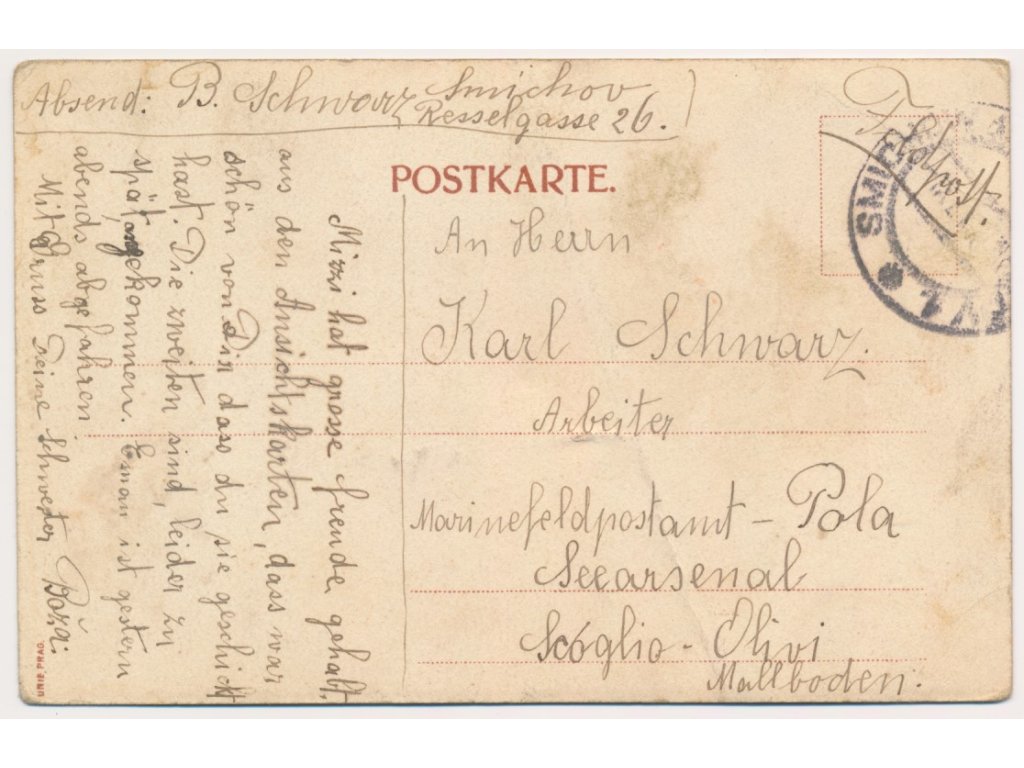 Absend: B. Schwarz Smichov
Resselgasse 26.
Feldpost.
SMI
POSTKARTE.
An Herrn
Karl Schwarz.
Arbeiter
Marinefeldpostamt - Pola
Seearsenal
Scóglio - Olivi
Mallboden.
Mizzi hat grosse freude gehabt.
aus den Ansichtskarten, dass war
schön von Dir dass du sie geschickt
hast. Die zweiten sind, leider zu
spät angekommen. Eman ist gestern
abends abgefahren
Mit Gruss Deine schwester Boža:
UNIE, PRAG.